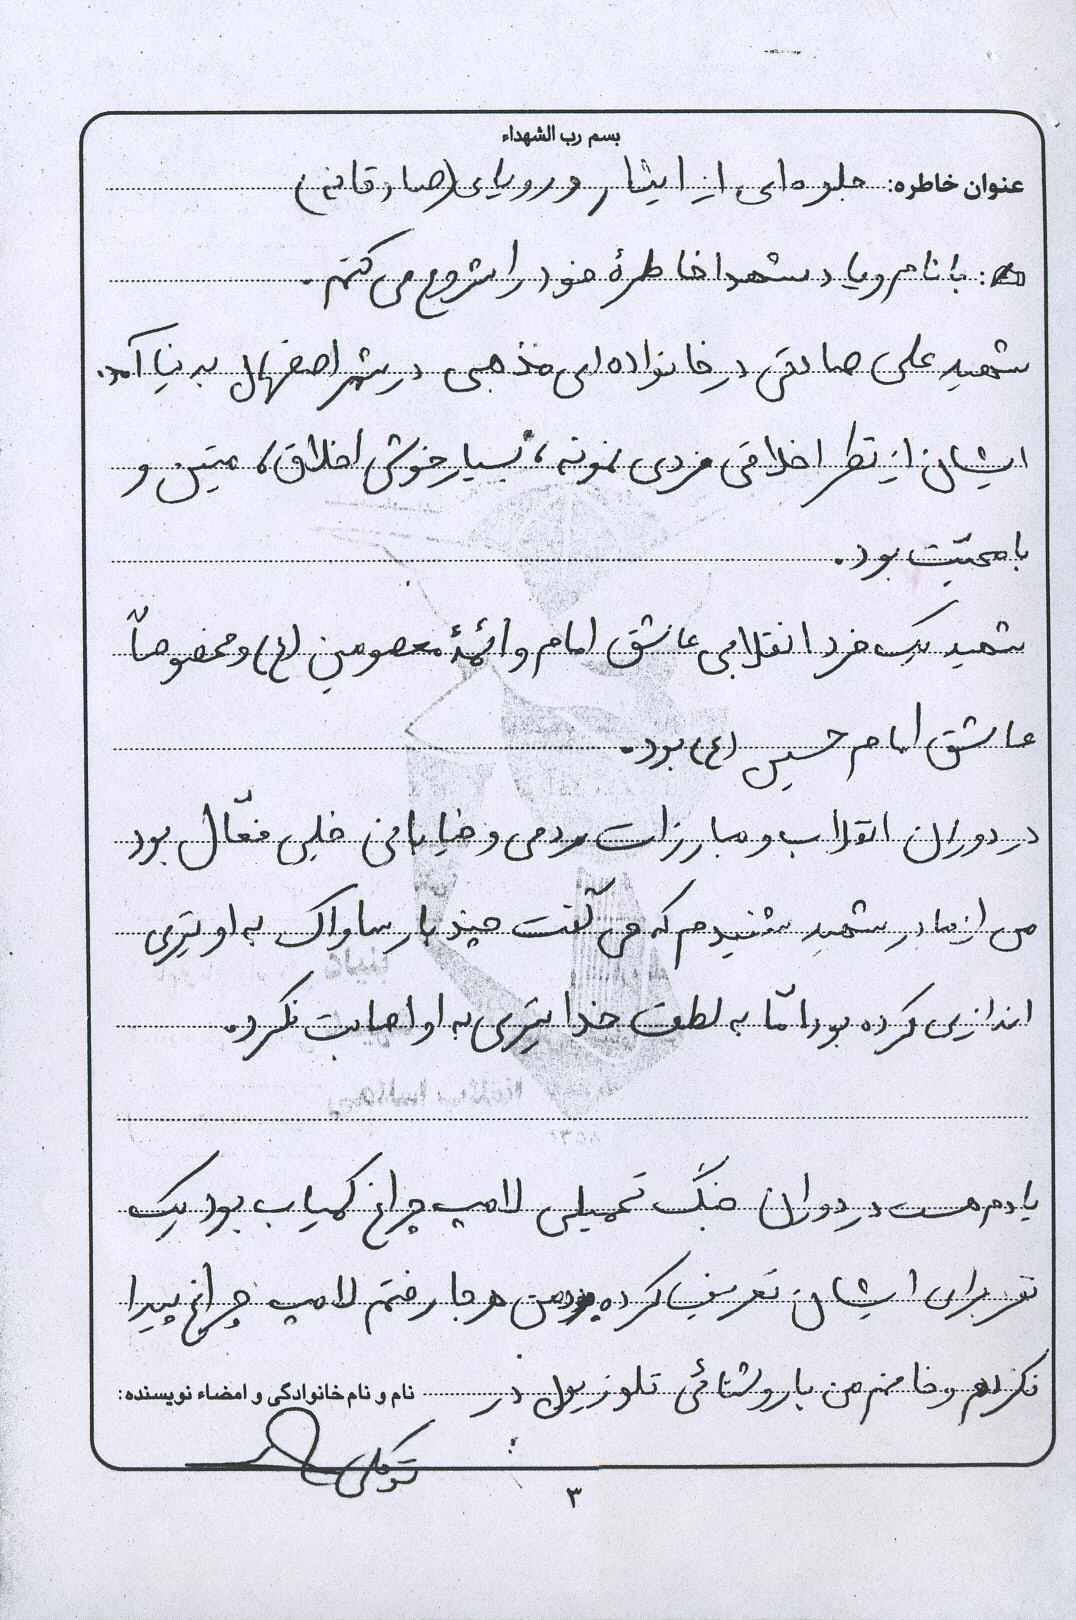 بسم رب الشهداء
عنوان خاطره: جلوه‌ای از ایثار و رویای (صادقانه)
: با نام و یاد شهدا خاطرهٔ خود را شروع می کنم.
شهید علی صادقی در خانواده ای مذهبی در شهر اصفهان به دنیا آمد.
ایشان از نظر اخلاقی فردی نمونه، بسیار خوش اخلاق، متین و
با محبّت بود.
شهید یک فرد انقلابی عاشق امام و ائمهٔ معصومین (ع) و مخصوصاً
عاشق امام حسین (ع) بود.
در دوران انقلاب و مبارزات مردمی و خیابانی خیلی فعّال بود
من از مادر شهید شنیدم که می گفت چند بار ساواک به او تیری
اندازی کرده بود امّا به لطف خدا تیری به او اصابت نکرد.
یادم هست در دوران جنگ تحمیلی لامپ چراغ کمیاب بود یک
نفر برای ایشان تعریف کرده بود من هر جا رفتم لامپ چراغ پیدا
نکردم و خانم من با روشنائی تلوزیون در
نام و نام خانوادگی و امضاء نویسنده:
توکلی
۳